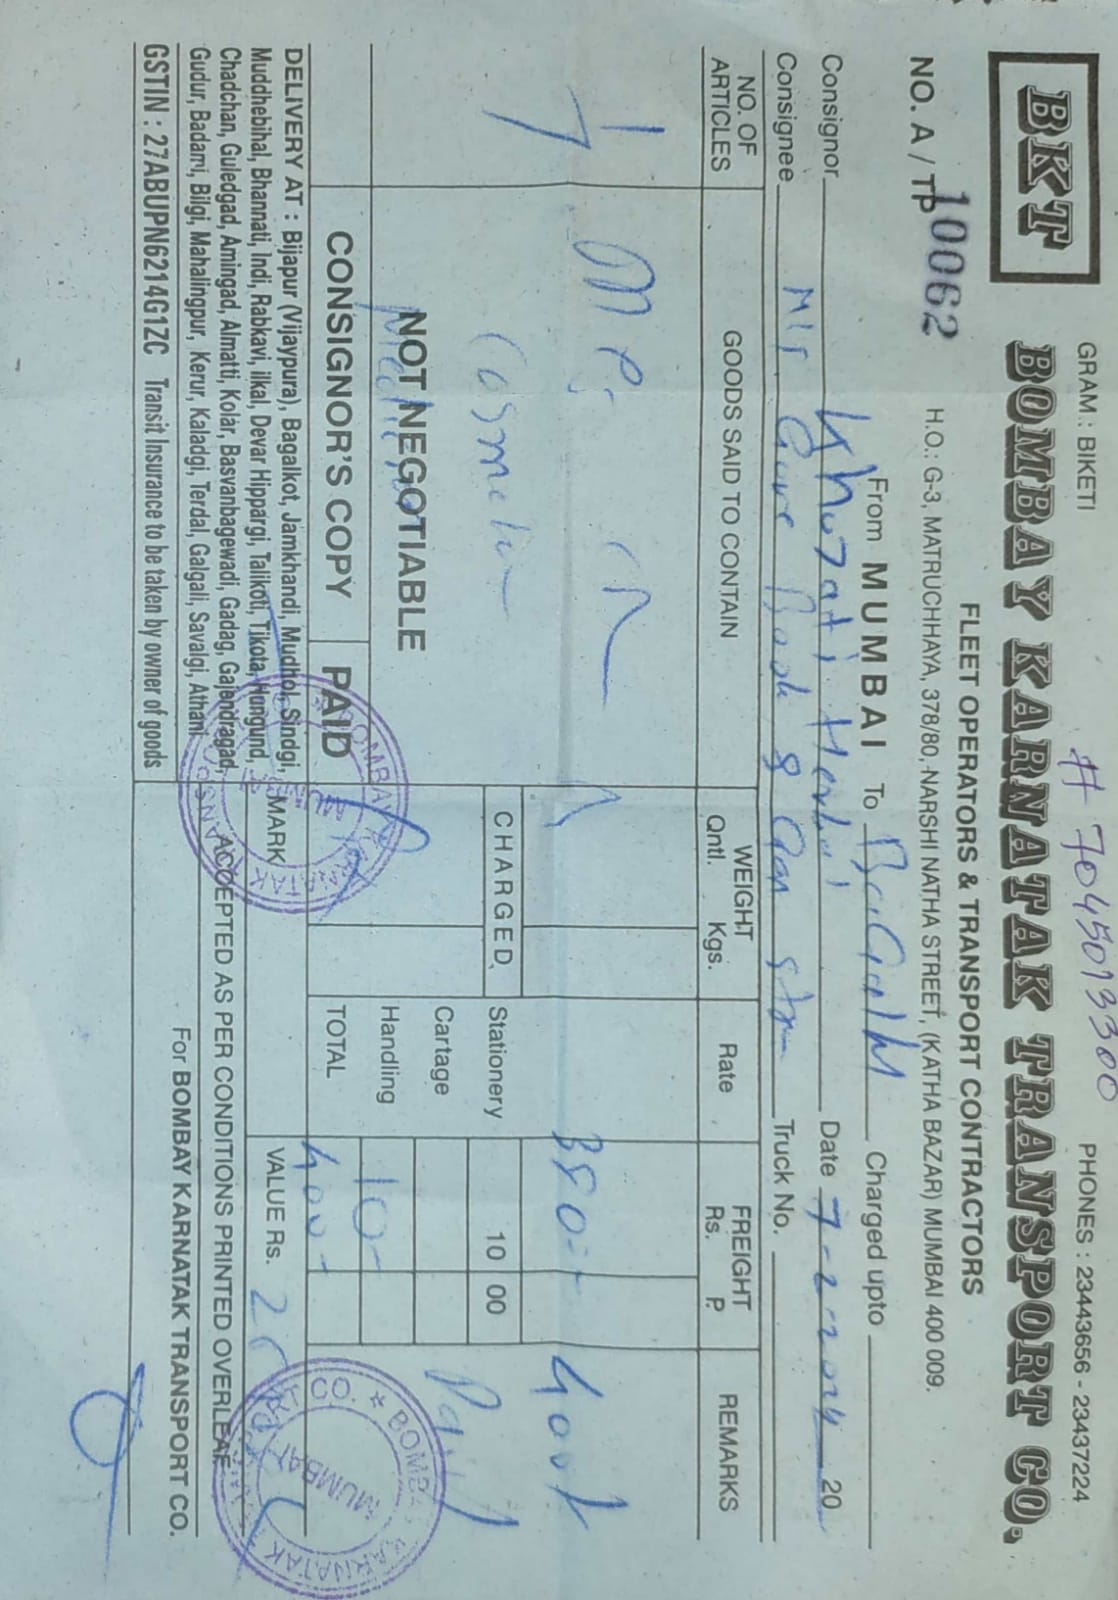 # 7045013300
GRAM : BIKETI PHONES : 23443656 - 23437224
BKT BOMBAY KARNATAK TRANSPORT CO.
FLEET OPERATORS & TRANSPORT CONTRACTORS
H.O.: G-3, MATRUCHHAYA, 378/80, NARSHI NATHA STREET, (KATHA BAZAR) MUMBAI 400 009.
NO. A / TP 10062
From MUMBAI To Charged upto
Consignor Date 20
Consignee Truck No.
NO. OF ARTICLES GOODS SAID TO CONTAIN WEIGHT Qntl. Kgs. Rate FREIGHT Rs. P. REMARKS
380-
CHARGED Stationery 10 00
Paid
Cartage
NOT NEGOTIABLE
Handling 10-
CONSIGNOR'S COPY PAID TOTAL 400-
DELIVERY AT : Bijapur (Vijaypura), Bagalkot, Jamkhandi, Mudhol, Sindgi,
Muddhebihal, Bhannati, Indi, Rabkavi, ilkal, Devar Hippargi, Talikoti, Tikota, Hungund,
Chadchan, Guledgad, Amingad, Almatti, Kolar, Basvanbagewadi, Gadag, Gajendragad,
Gudur, Badami, Bilgi, Mahalingpur, Kerur, Kaladgi, Terdal, Galgali, Savalgi, Athani
MARK VALUE Rs.
ACCEPTED AS PER CONDITIONS PRINTED OVERLEAF
For BOMBAY KARNATAK TRANSPORT CO.
GSTIN : 27ABUPN6214G1ZC Transit Insurance to be taken by owner of goods